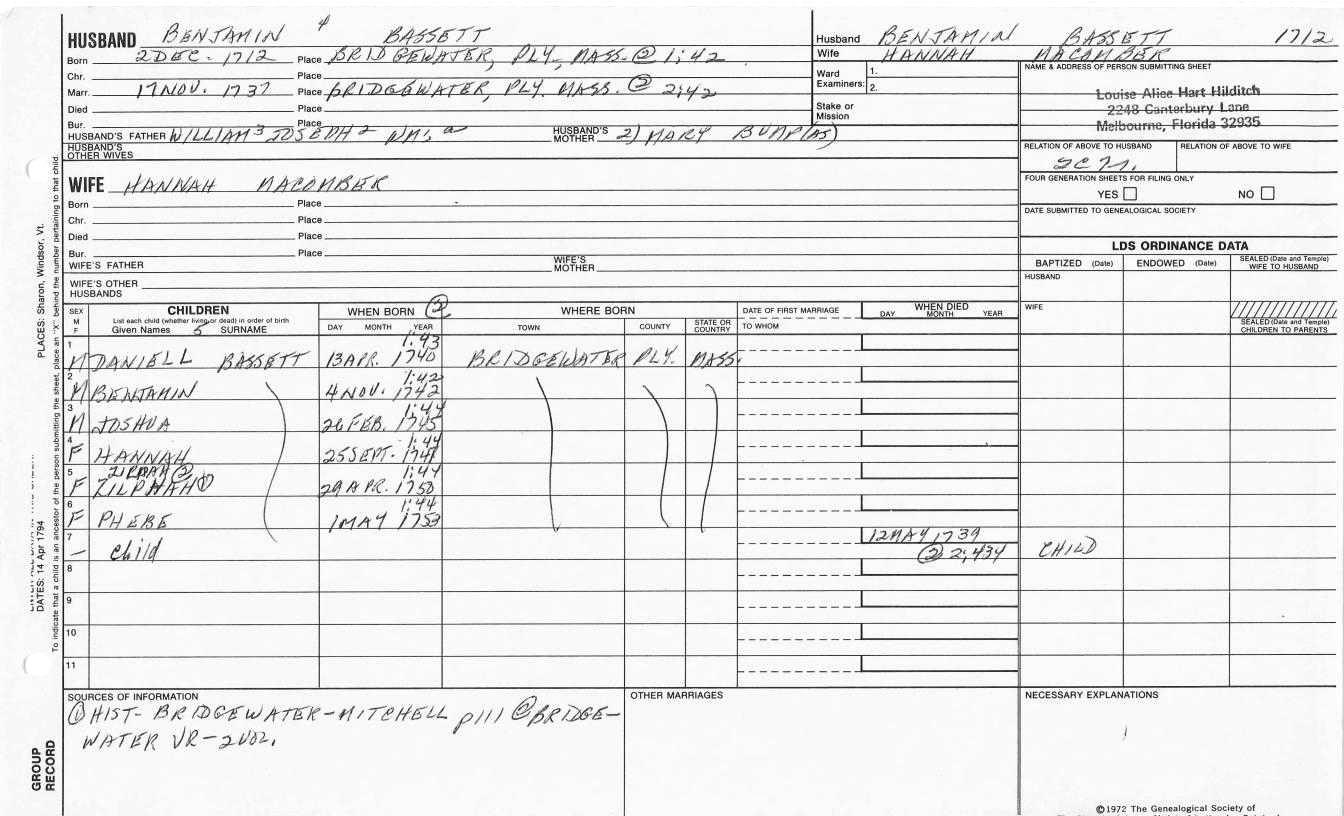 HUSBAND BENJAMIN 4 BASSETT
Born 2 DEC. 1712 Place BRIDGEWATER, PLY., MASS. ② 1:42
Chr. Place
Marr. 17 NOV. 1737 Place BRIDGEWATER, PLY. MASS. ② 2:42
Died Place
Bur. Place
HUSBAND'S FATHER WILLIAM 3 JOSEPH 2 HUSBAND'S MOTHER 2) MARY BUMP(AS)
HUSBAND'S OTHER WIVES
WIFE HANNAH MACOMBER
Born Place
Chr. Place
Died Place
Bur. Place
WIFE'S FATHER WIFE'S MOTHER
WIFE'S OTHER HUSBANDS
Husband BENJAMIN BASSETT 1712
Wife HANNAH MACOMBER
Ward Examiners: 1.
2.
Stake or Mission
NAME & ADDRESS OF PERSON SUBMITTING SHEET
Louise Alice Hart Hilditch
2248 Canterbury Lane
Melbourne, Florida 32935
RELATION OF ABOVE TO HUSBAND RELATION OF ABOVE TO WIFE
FOUR GENERATION SHEETS FOR FILING ONLY
YES NO
DATE SUBMITTED TO GENEALOGICAL SOCIETY
LDS ORDINANCE DATA
BAPTIZED (Date) ENDOWED (Date) SEALED (Date and Temple) WIFE TO HUSBAND
HUSBAND
WIFE
SEALED (Date and Temple) CHILDREN TO PARENTS
SEX M F
CHILDREN
List each child (whether living or dead) in order of birth
Given Names 5 SURNAME
WHEN BORN ②
DAY MONTH YEAR
WHERE BORN
TOWN COUNTY STATE OR COUNTRY
DATE OF FIRST MARRIAGE
TO WHOM
WHEN DIED
DAY MONTH YEAR
1 1:43
M DANIELL BASSETT 13 APR. 1740 BRIDGEWATER PLY. MASS.
2 1:42
M BENJAMIN 4 NOV. 1742
3 1:44
M JOSHUA 26 FEB. 1745
4 1:44
F HANNAH 25 SEPT.
5 ZILPAH ② 1:44
F ZILPHAH ① 29 APR. 1750
6 1:44
F PHEBE 1 MAY 1753
7 12 MAY 1739
— child ② 2:434 CHILD
8
9
10
11
SOURCES OF INFORMATION
① HIST- BRIDGEWATER-MITCHELL p111 ② BRIDGE-
WATER VR-2VOL.
OTHER MARRIAGES
NECESSARY EXPLANATIONS
©1972 The Genealogical Society of
PLACES: Sharon, Windsor, Vt.
DATES: 14 Apr 1794
To indicate that a child is an ancestor of the person submitting the sheet, place an "X" behind the number pertaining to that child.
GROUP RECORD